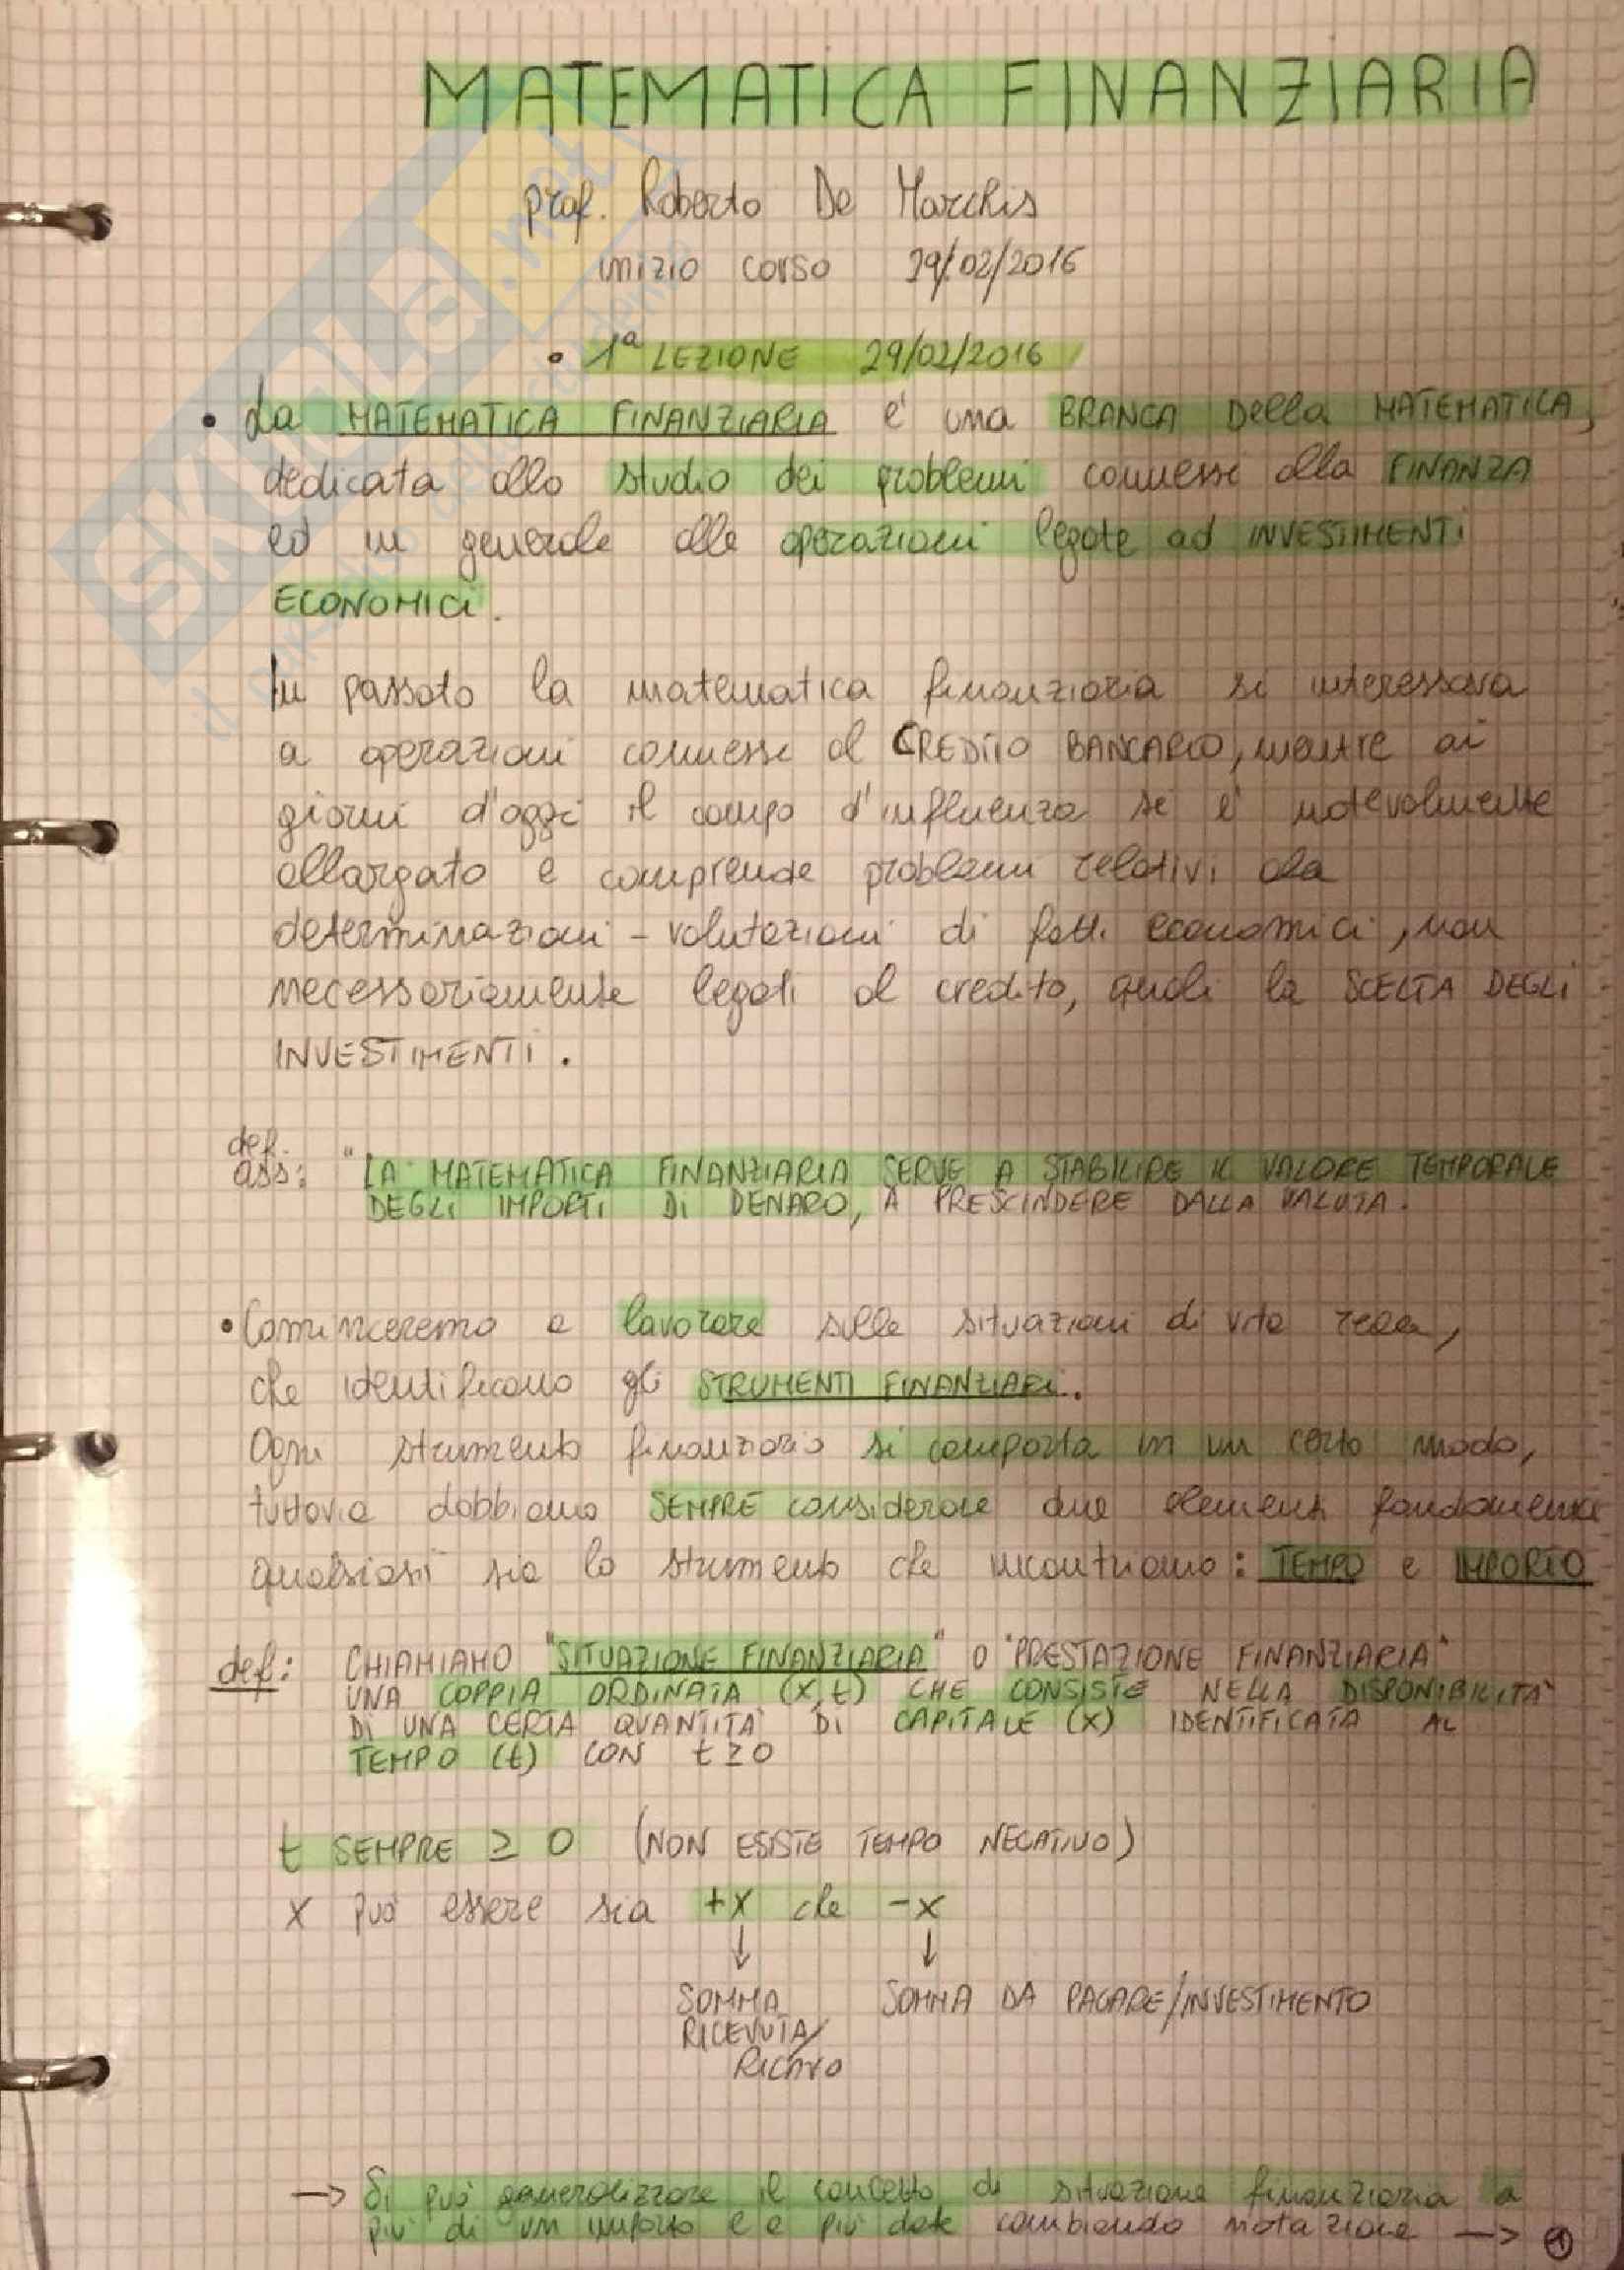 MATEMATICA FINANZIARIA
prof. Roberto De Marchis
inizio corso 29/02/2016
• 1ª LEZIONE 29/02/2016
• La MATEMATICA FINANZIARIA e' una BRANCA Della MATEMATICA,
dedicata allo studio dei problemi connessi alla FINANZA
ed in generale alle operazioni legate ad INVESTIMENTI
ECONOMICI.
In passato la matematica finanziaria si interessava
a operazioni connesse al CREDITO BANCARIO, mentre ai
giorni d'oggi il campo d'influenza si e' notevolmente
allargato e comprende problemi relativi alla
determinazioni - valutazioni di fatti economici, non
necessariamente legati al credito, quali la SCELTA DEGLI
INVESTIMENTI.
def.
ass: "LA MATEMATICA FINANZIARIA SERVE A STABILIRE IL VALORE TEMPORALE
DEGLI IMPORTI DI DENARO, A PRESCINDERE DALLA VALUTA.
• Cominceremo a lavorare sulle situazioni di vita reale,
che identificano gli STRUMENTI FINANZIARI.
Ogni strumento finanziario si comporta in un certo modo,
tuttavia dobbiamo SEMPRE considerare due elementi fondamentali
qualsiasi sia lo strumento che incontriamo: TEMPO e IMPORTO
def: CHIAMIAMO "SITUAZIONE FINANZIARIA" O "PRESTAZIONE FINANZIARIA"
UNA COPPIA ORDINATA (x,t) CHE CONSISTE NELLA DISPONIBILITA'
DI UNA CERTA QUANTITA' DI CAPITALE (x) IDENTIFICATA AL
TEMPO (t) CON t ≥ 0
t SEMPRE ≥ 0 (NON ESISTE TEMPO NEGATIVO)
x può essere sia +x che -x
↓ ↓
SOMMA SOMMA DA PAGARE/INVESTIMENTO
RICEVUTA/
RICAVO
→ Si può generalizzare il concetto di situazione finanziaria a
più di un importo e a più date cambiando notazione → 1
SKUOLA.net